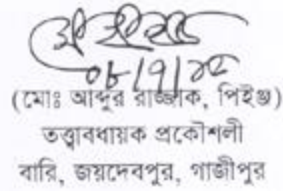 (মোঃ আব্দুর রাজ্জাক, পিইঞ্জ)
তত্ত্বাবধায়ক প্রকৌশলী
বারি, জয়দেবপুর, গাজীপুর